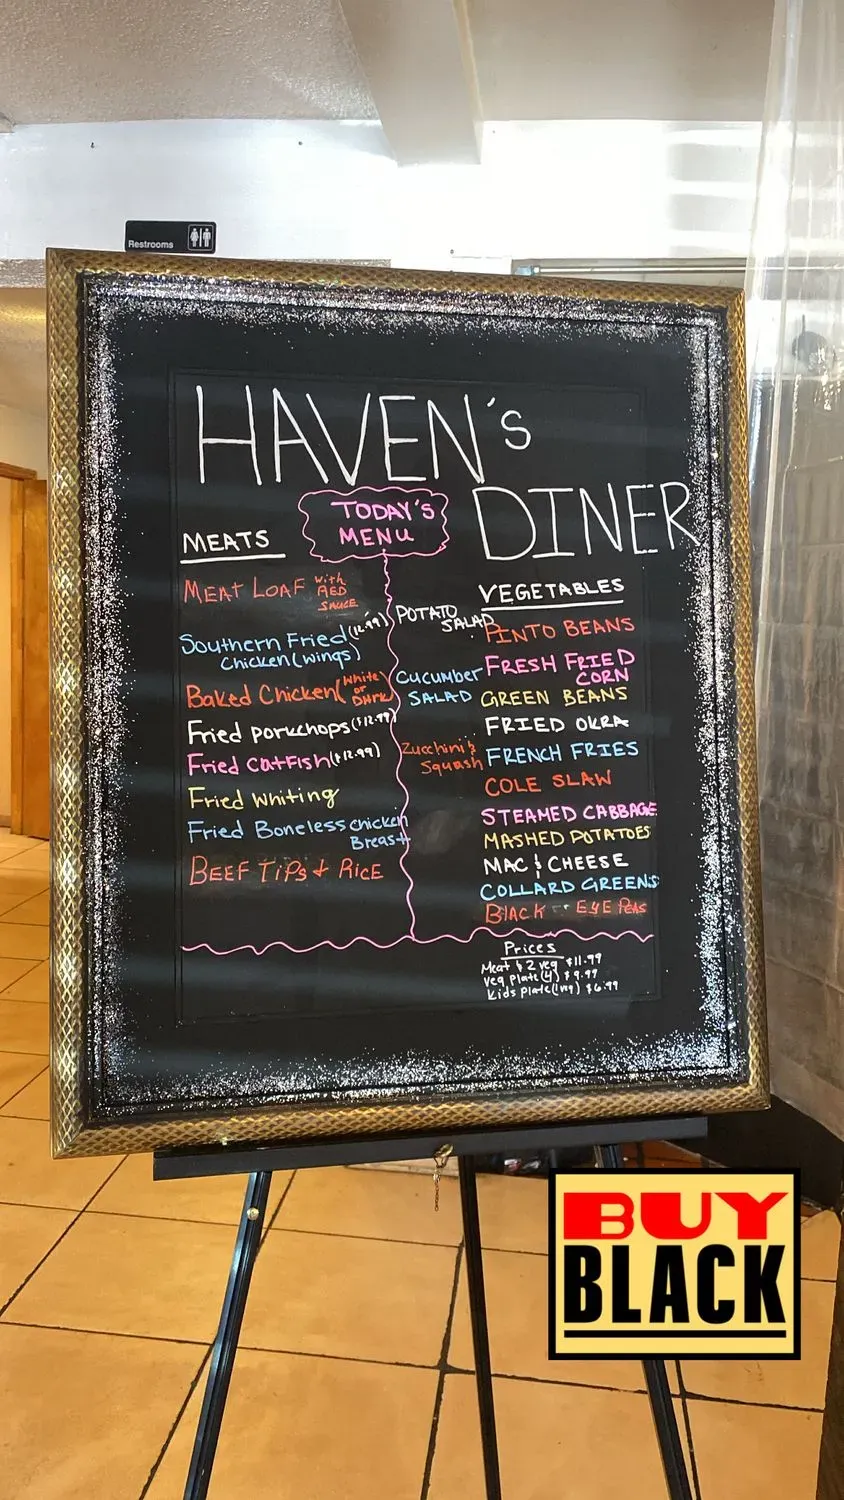 Restrooms
HAVEN's
DINER
TODAY'S
MENU
MEATS
MEAT LOAF with
RED
SAUCE
Southern Fried (12.99)
Chicken (wings)
Baked Chicken (White
or
Dark)
Fried porkchops ($12.99)
Fried Catfish ($12.99)
Fried Whiting
Fried Boneless chicken
Breast
BEEF TiPs & RiCE
POTATO
SALAD
CUCUMBER
SALAD
Zucchini &
Squash
VEGETABLES
PINTO BEANS
FRESH FRIED
CORN
GREEN BEANS
FRIED OKRA
FRENCH FRIES
COLE SLAW
STEAMED CABBAGE
MASHED POTATOES
MAC & CHEESE
COLLARD GREENS
BLACK -- EYE PEAS
Prices
Meat & 2 veg $11.99
Veg plate (4) $9.99
Kids plate (1 veg) $6.99
BUY
BLACK